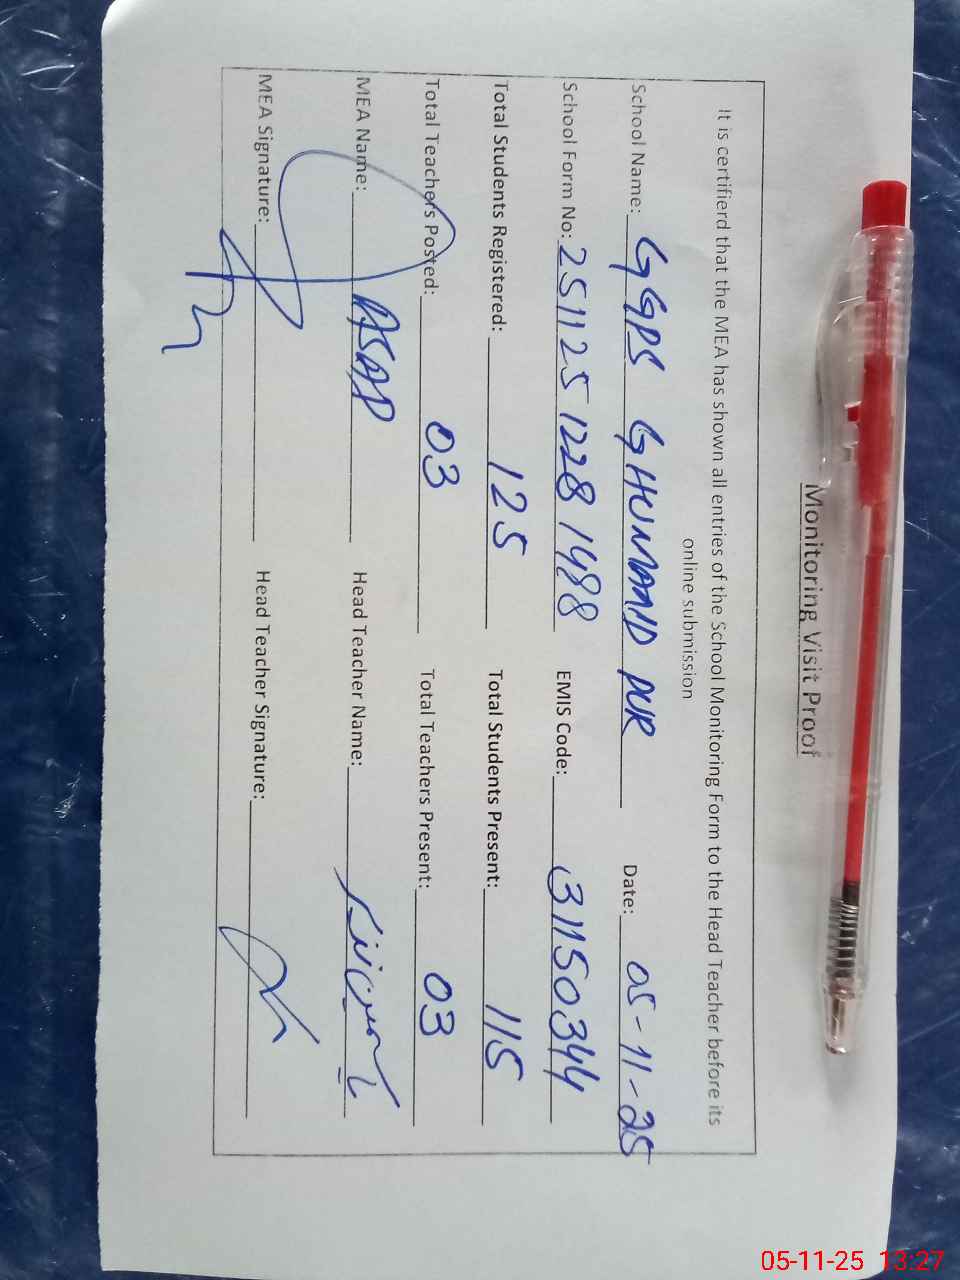 Monitoring Visit Proof
It is certifierd that the MEA has shown all entries of the School Monitoring Form to the Head Teacher before its
online submission
School Name: GGPS GHUMAND PUR Date: 05-11-25
School Form No: 251125 1228 1488 EMIS Code: 31150344
Total Students Registered: 125 Total Students Present: 115
Total Teachers Posted: 03 Total Teachers Present: 03
MEA Name: ASAD Head Teacher Name:
MEA Signature: Head Teacher Signature:
05-11-25 13:27